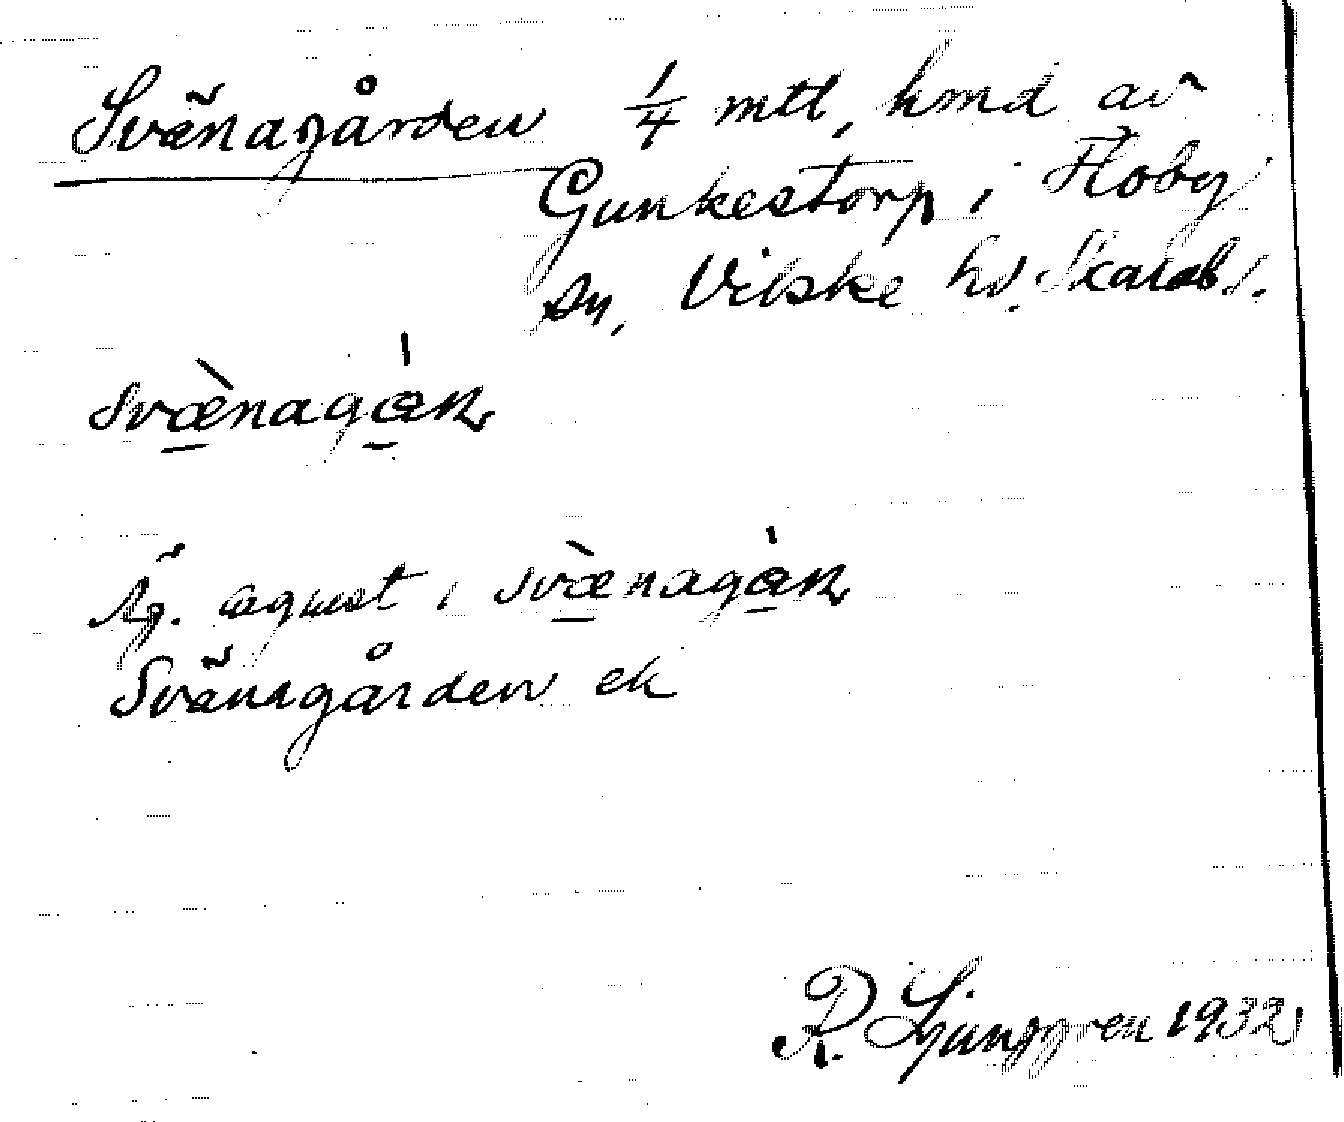 Svänagården 1/4 mtl, hmd av
Gunkestorp i Floby
sn, Vilske hd. Skarab l.
svæ̀nagɑ́ɳ
Äg. agust i svæ̀nagɑ́ɳ
Svänagården ek
R. Ljunggren 1932